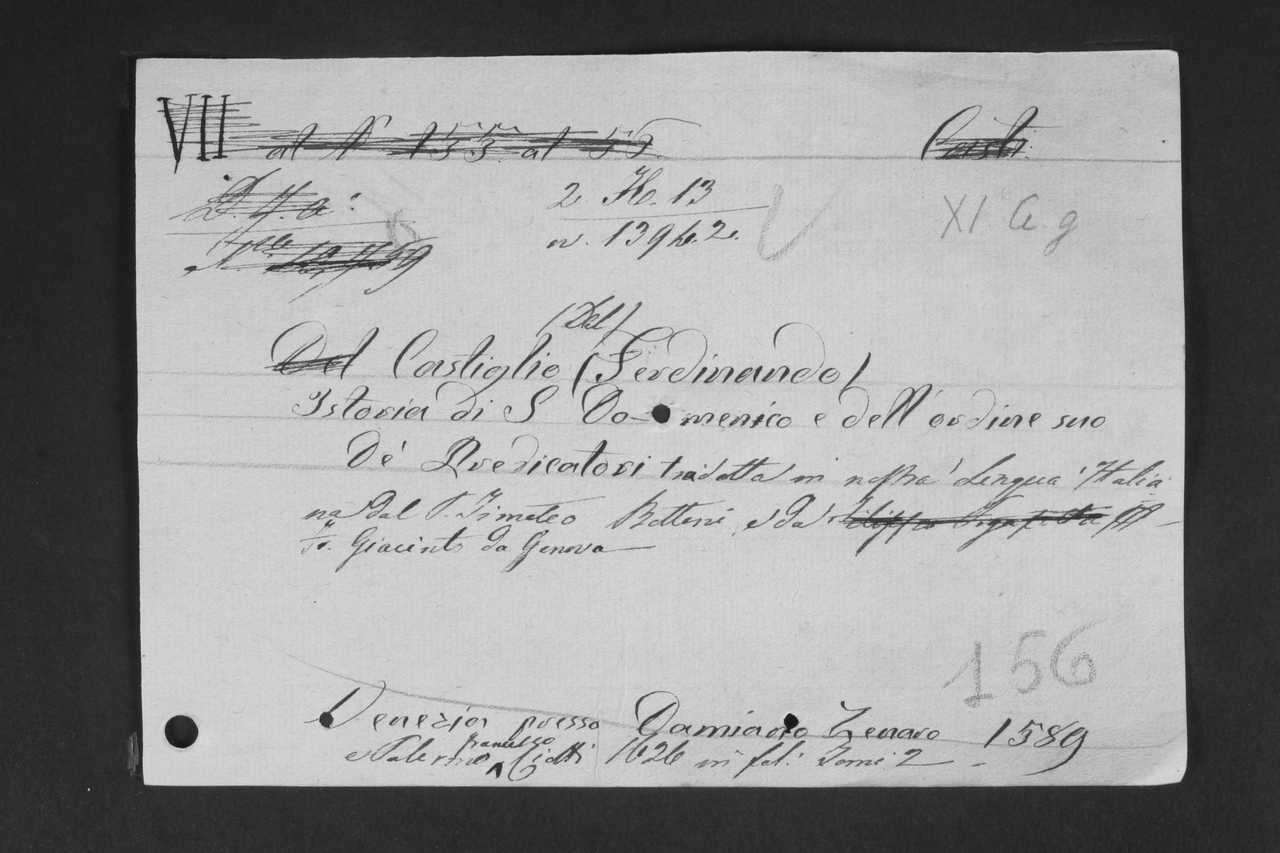 VII al N 153 al 55
D. 4. a:
2. He. 13
XI a. g
n. 139 he. 2.
(Del)
Del Castiglio (Ferdinando)
Istoria di S Do-menico e dell'ordine suo
De' Predicatori tradotta in nostra Lingua Italia
na dal P. Timoteo Botteni e da
Fr. Giacinto da Genova
156
Venezia presso Damiano Zenaro 1589
Francesco
e Palermo Ciotti 1626 in fol: Tomi 2